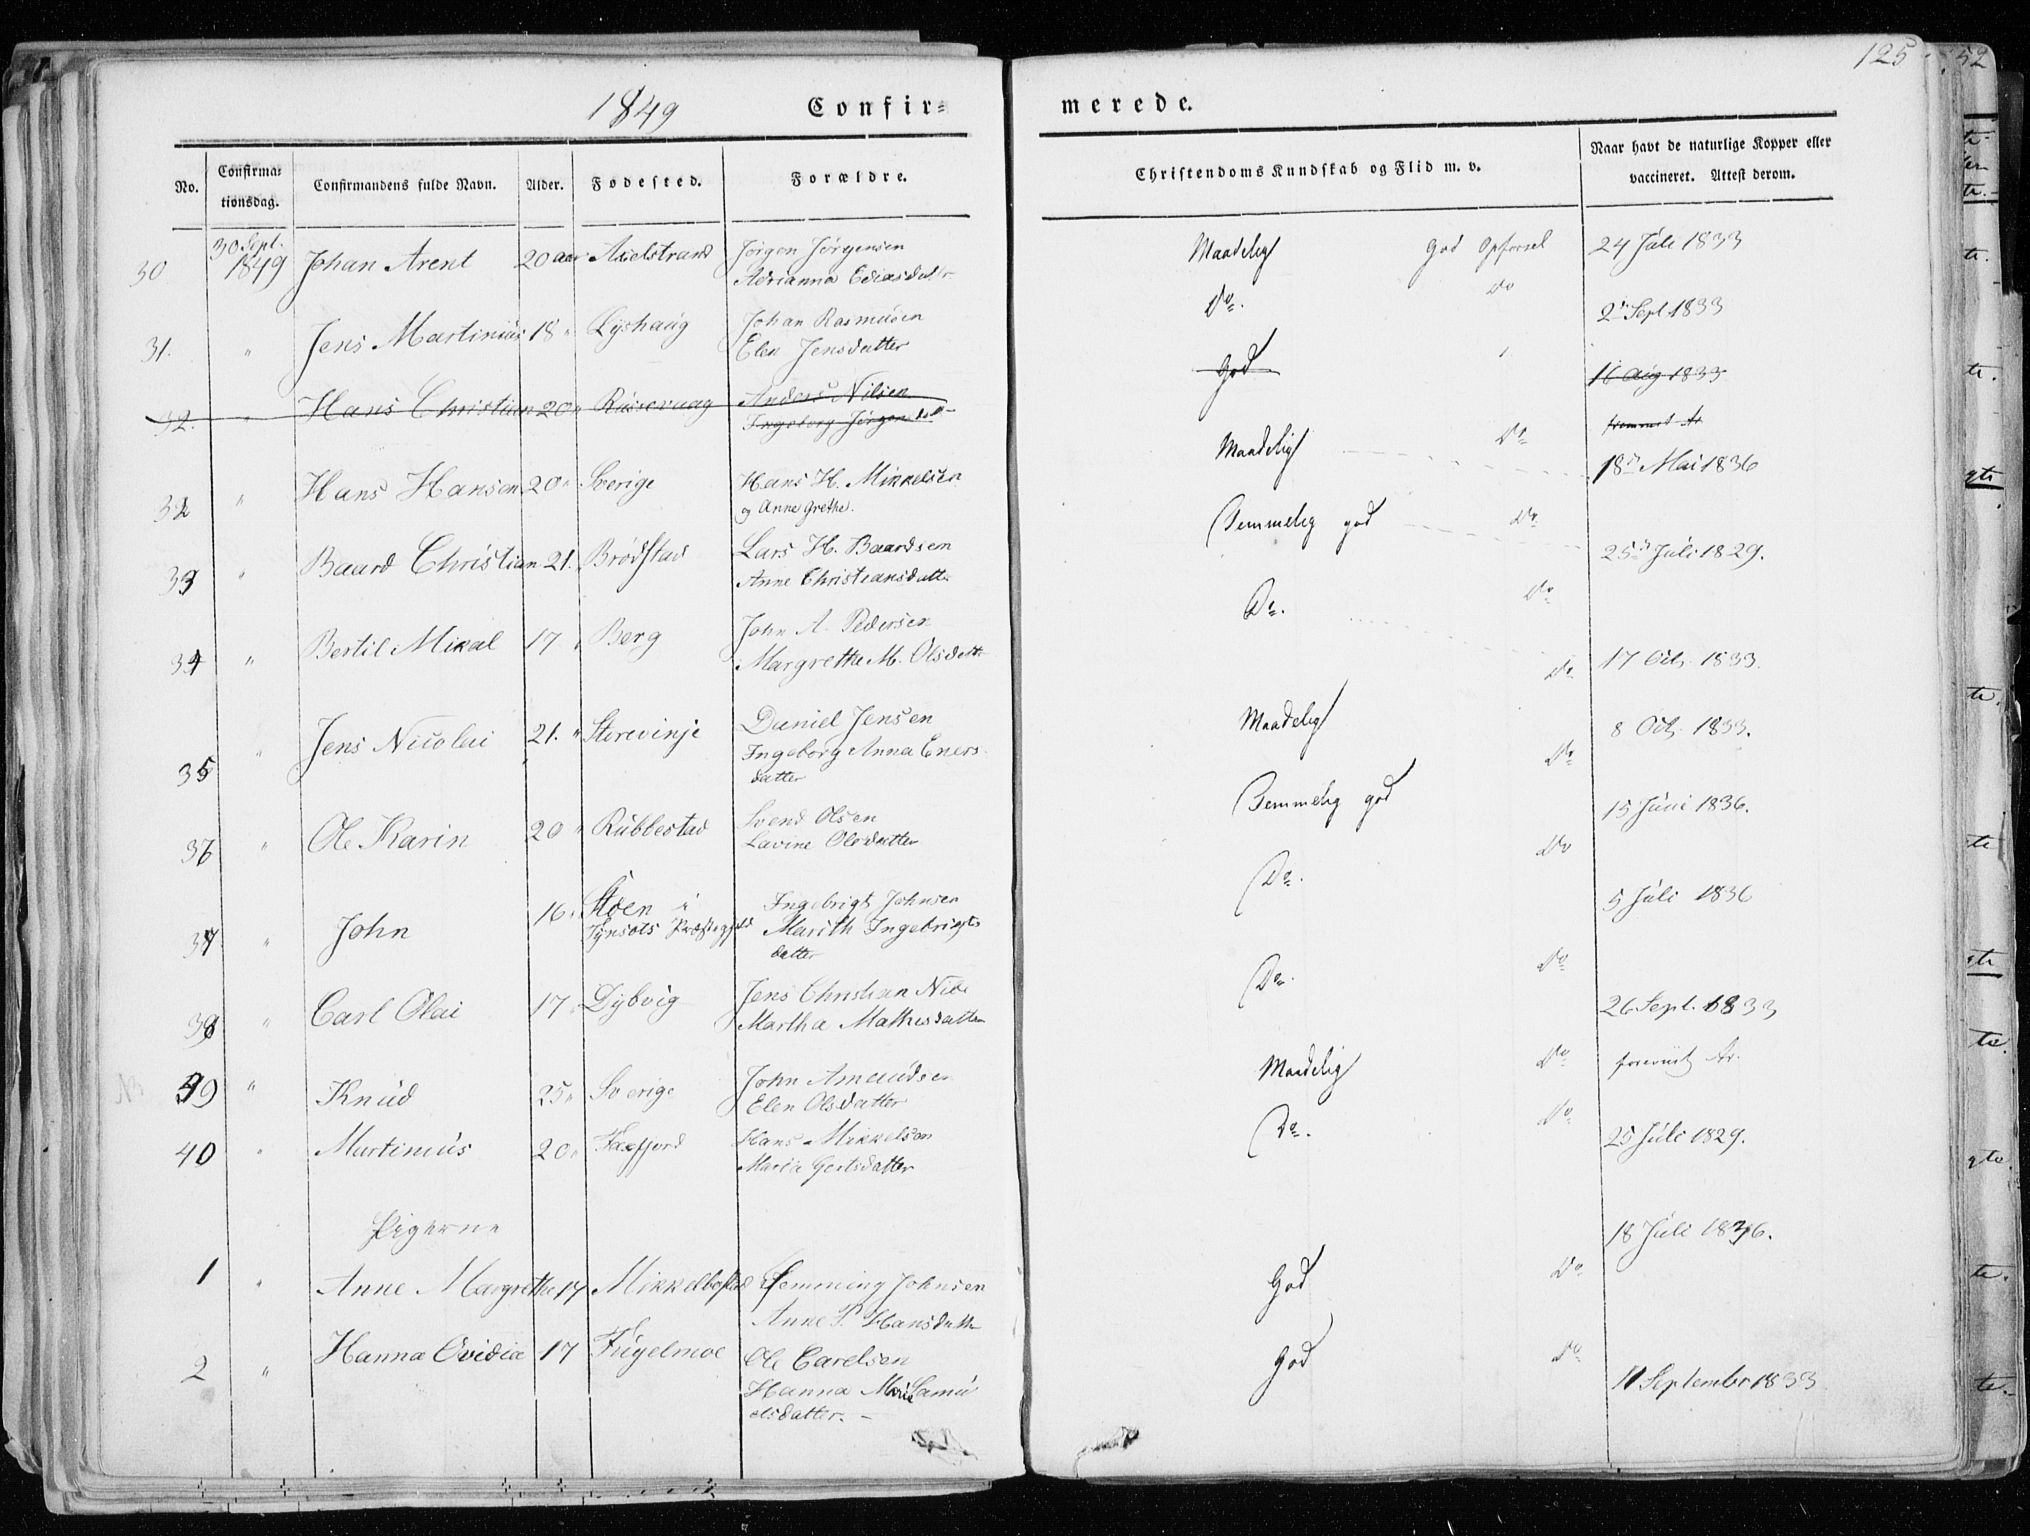 125
52
1849 Confir= merede.
No. Confirma= tionsdag. Confirmandens fulde Navn. Alder. Födested. Forældre. Christendoms Kundskab og Flid m. v. Naar havt de naturlige Kopper eller vaccineret. Attest derom.
30 30 Sept. 1849 Johan Arent 20 aar Axelstrand Jørgen Jørgensen Maadelig God Opførsel 24 Juli 1833
Adrianna
31. " Jens Martinius 18 " Lyshaug Johan Rasmusen Do. Do 2 Sept 1833
Elen Jensdatter
32. " Hans Christian 20 " Anders Nilsen God 16 Aug 1833
Ingeborg Jørgensd
32 " Hans Hansen 20 " Sverige Hans H. Mikkelsen Maadelig Do 18 Mai 1836
og Anne Grethe.
33 " Baard Christian 21. Brødstad Lars H. Baardsen Temmelig god Do 25 Juli 1829.
Anne Christiansdatter
34 " Bertil Mikal 17 " Berg John A. Pedersen Do. Do 17 Oct. 1833.
Margrethe M. Olsdatt
35 " Jens Nicolai 21. " Storevinje Daniel Jensen Maadelig Do 8 Oct. 1833.
Ingeborg Anna Eners-
datter
36 " Ole Karin 20 " Rubbestad Svend Olsen Temmelig god Do 15 Juni 1836.
Lavine Olsdatter
37 " John 16 " Støen i Ingebrigt Johnsen Do. Do 5 Juli 1836
Tynsets Præstegjeld Marith Ingebrigts
datter
38 " Carl Olai 17 " Dybvig Jens Christian Do. Do 26 Sept. 1833
Martha Mathisdatter
39 " Knud 25 " Sverige John Amundsen Maadelig Do foreviist Ar.
Elen Olsdatter
40 " Martinius 20 " Faxfjord Hans Mikkelsen Do. Do 25 Juli 1829.
Maria Gertsdatter
Pigerne
1 " Anne Margrethe 17 Mikkelbostad Flemming Johnsen God Do 18 Juli 1836.
Anne P. Hansdatter
2 " Hanna Ovidia 17 Fugelmoe Ole Carelsen God Do 11 September 1833
Hanna Maria Samu
elsdatter. -